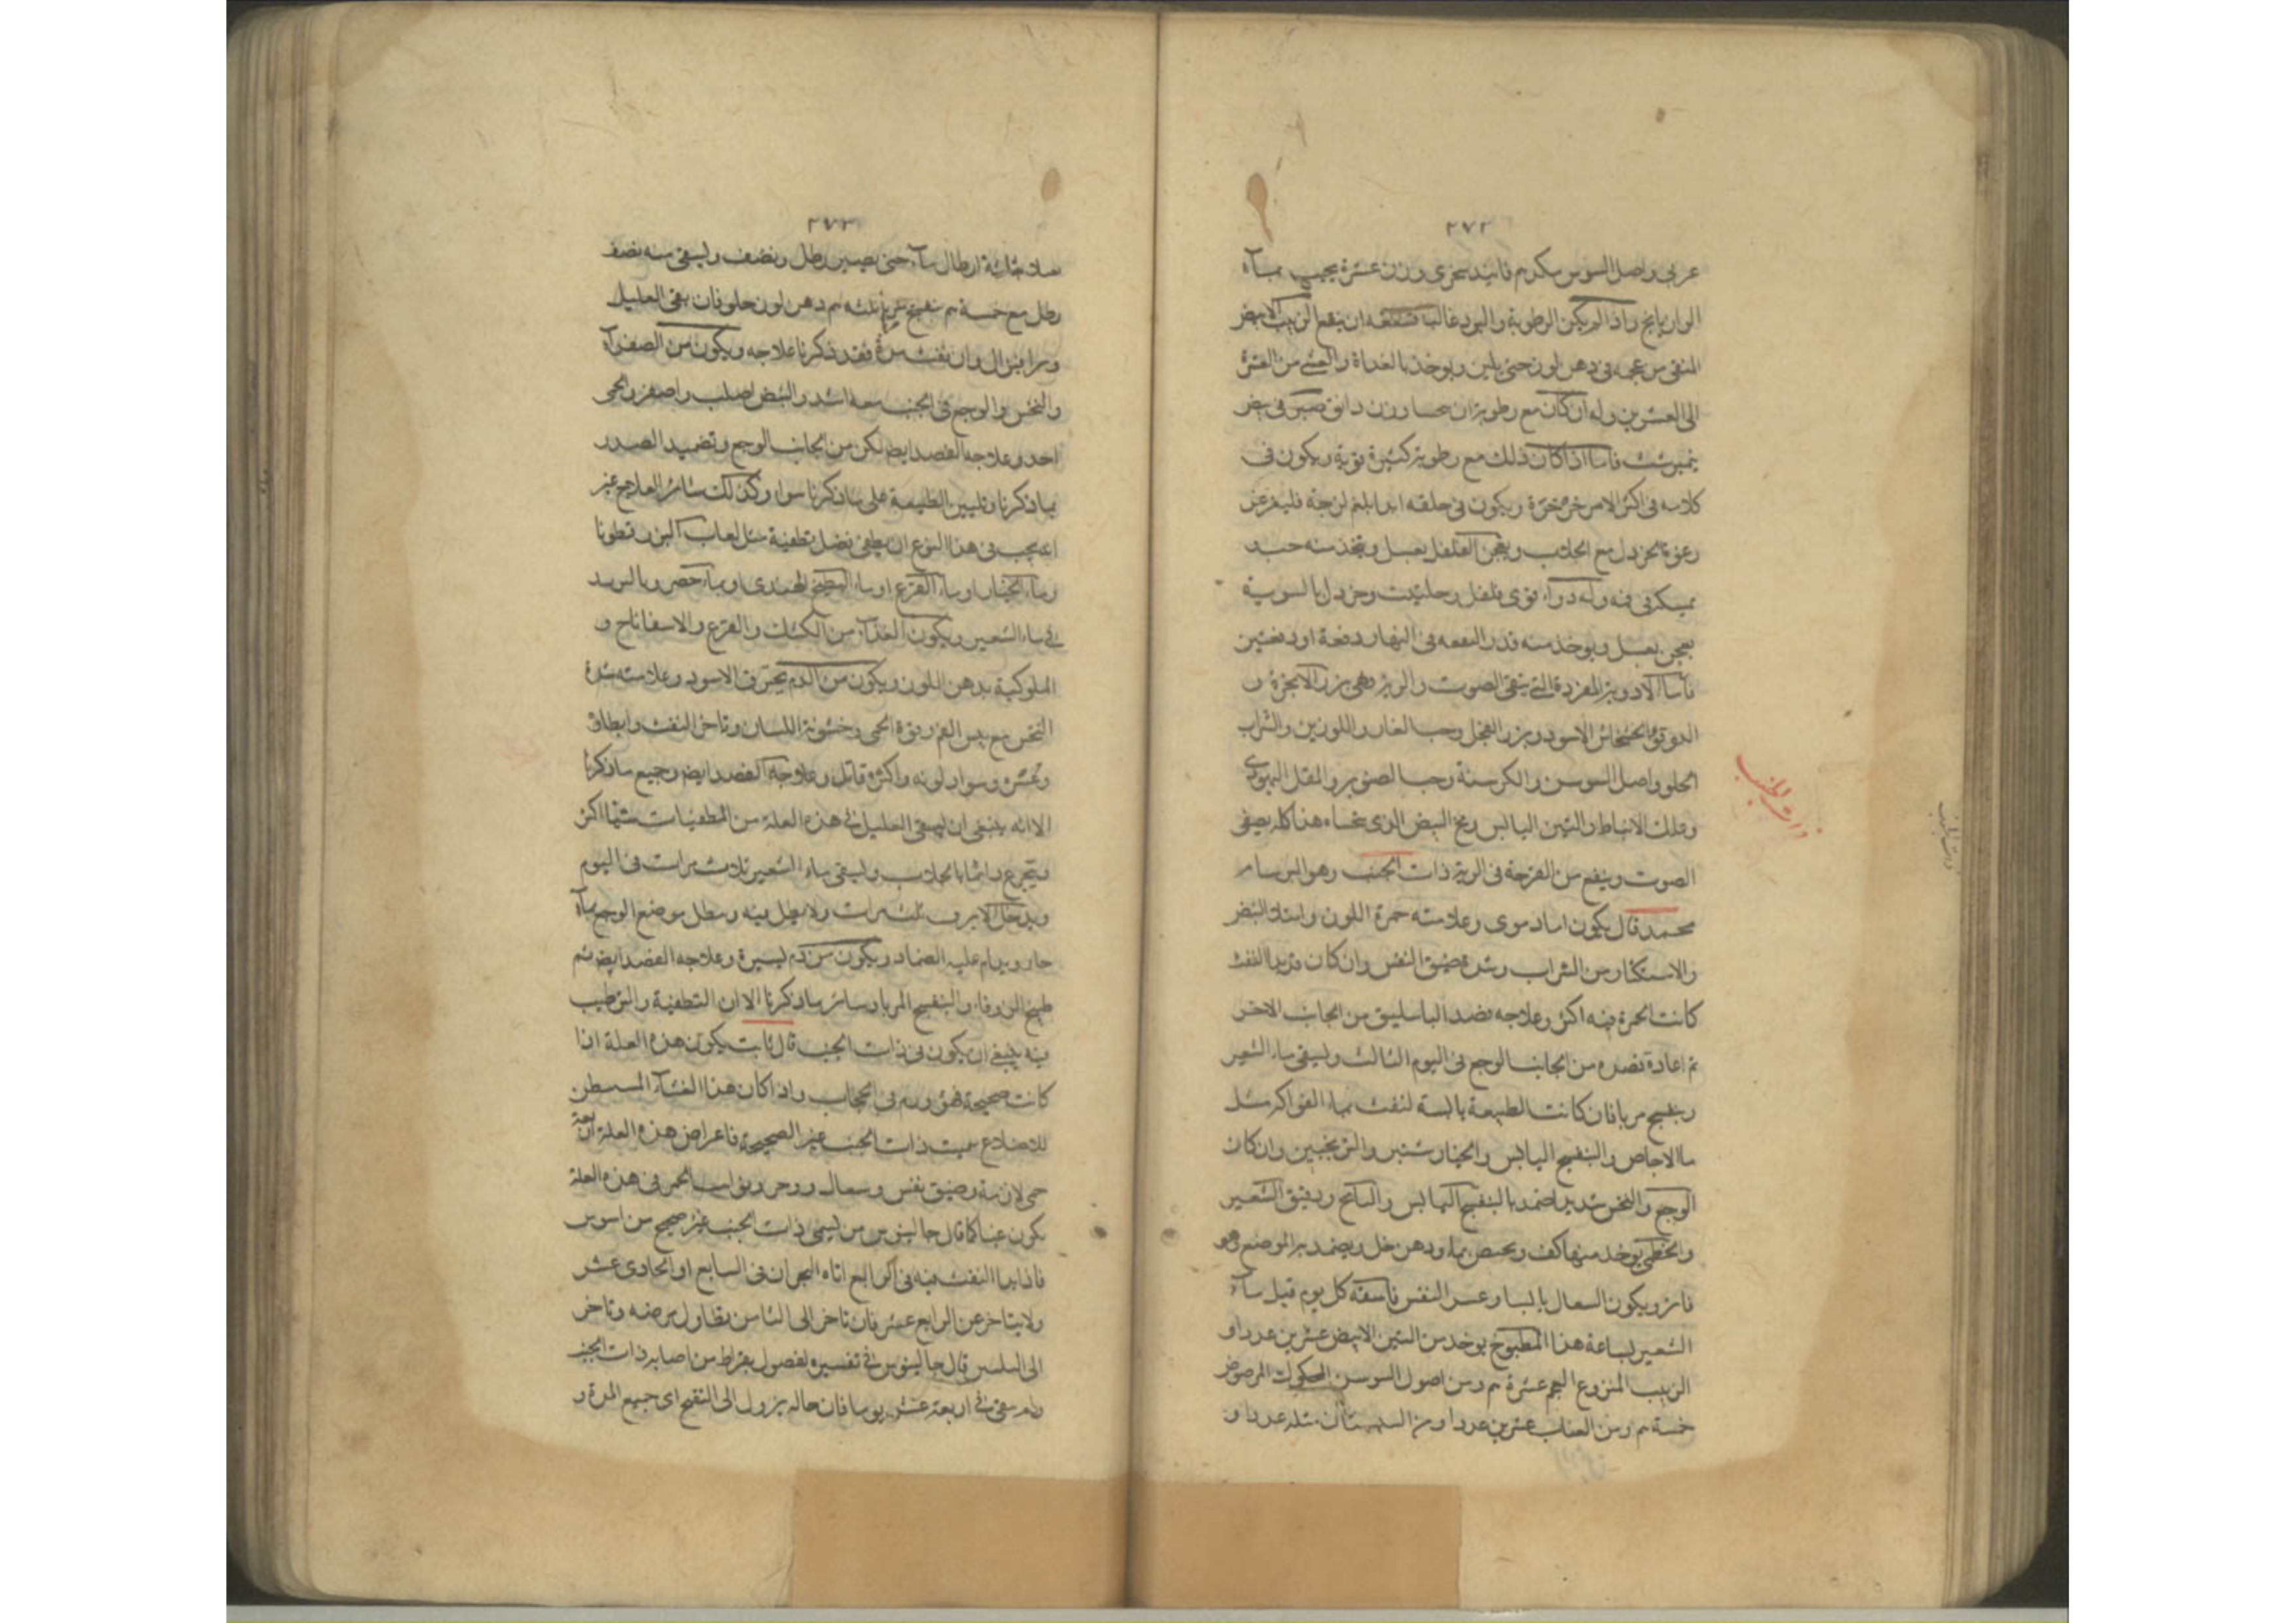 ٢٧٢
عربى واصل السوس مكرم فانيد سجزى وزن عشرة يعجن بماء
الرازيانج واذا لم يكن الرطوبة والبرد غالبا ان ينقع الزبيب الابيض
المنقى من عجمه فى دهن لوز حتى يلين ويوخذ بالغداة والعشى من العشرة
الى العشرين وله ان كان مع رطوبة ان يحسا وزن دانق فى بيض
نيمبرشت فاما اذا كان ذلك مع رطوبة كثيرة قوية ويكون فى
كلامه فى اكثر الامر خرخرة ويكون فى حلقه ابدا بلغم لزجة فليغرغر
رغوة الخردل مع الجلاب ويعجن الفلفل بعسل ويتخذ منه حب
يمسكه فى فمه وله دواء قوى فلفل وحلتيت وخردل بالسوية
يعجن بعسل ويوخذ منه قدر البندقة فى النهار دفعة او دفعتين
فاما الادوية المفردة التى ينقى الصوت والرية فهى بزر الانجرة و
الخشخاش الاسود وبزر الفجل وحب الغار واللوزين والشراب
الحلو واصل السوسن والكرسنة وحب الصنوبر والمقل اليهودى
وعلك الانباط والتين اليابس ومخ البيض الذى يتحساه هذا كله يصفى
الصوت وينفع من القرحة فى الرية ذات الجنب وهو البرسام
محمد قال يكون اما دموى وعلامته حمرة اللون وامتلاء النبض
والاستكثار من الشراب وشدة ضيق النفس وان كان قد بدا النفث
كانت الحمرة فيه اكثر وعلاجه فصد الباسليق من الجانب الاخر
ثم اعادة فصده من الجانب الوجع فى اليوم الثالث وليسقى ماء الشعير
وبنفسج مربا فان كانت الطبيعة يابسة بماء الفواكه مثل
ماء الاجاص والبنفسج اليابس والخيار شنبر والترنجبين وان كان
الوجع والنخس شديدا ضمد بالبنفسج اليابس والبابونج ودقيق الشعير
والخطمى يوخذ منها كف ويعجن بماء ودهن خل ويضمد به الموضع وهو
فاتر ويكون السعال يابسا وعسر النفس فاسقه كل يوم قبل ماء
الشعير بساعة هذا المطبوخ يوخذ من التين الابيض عشرين عددا و
الزبيب المنزوع العجم عشرة م ومن اصول السوسن المحكوك المرضوض
خمسة م ومن العناب عشرين عددا ومن السبستان مثله عددا و
ذات الجنب
ذات الجنب
٢٧٣
ثلاثة ارطال ماء حتى يصير رطل ونصف وليسقى منه نصف
رطل مع خمسة م بنفسج مربا ثلثه م دهن لوز حلو فان بقى العليل
وبرا فبزال وان نفث مدة فقد ذكرنا علاجه ويكون من الصفراء
والنخس والوجع فى الجنب معه اشد والنبض اصلب واصغر والحمى
احد وعلاجه الفصد ايضا لكن من الجانب الوجع وتضميد الصدر
بما ذكرنا وتليين الطبيعة على ما ذكرنا سوا وكذلك سائر العلاج غير
انه يجب فى هذا النوع ان يطفى بفضل تطفية مثل لعاب البزر قطونا
وماء الخيار او ماء القرع او ماء البطيخ الهندى او بماء حصرم يبرد
فى ماء الشعير ويكون الغذاء من الكشك والقرع والاسفاناخ و
الملوكية بدهن اللوز ويكون من الدم يحترق الاسود وعلامته شدة
النخس مع يبس الفم وقوة الحمى وخشونة اللسان وتاخر النفث وابطاؤه
وعسره وسواد لونه واكثره قاتل وعلاجه الفصد ايضا وجميع ما ذكرنا
الا انه ينبغى ان يسقى العليل فى هذه العلة من المطفيات شيئا اكثر
فيتجرع دائما بالجلاب وليسقى ماء الشعير ثلاث مرات فى اليوم
ويدخل الابزن ثلث مرات ولا يطل فيه ونطل موضع الوجع بماء
حار ويدام عليه الضماد ويكون من دم يسيرة وعلاجه الفصد ايضا ثم
طبيخ الزوفا والبنفسج المربا وسائر ما ذكرنا الا ان التطفية والترطيب
فيه ينبغى ان يكون فى ذات الجنب قال ثابت يكون هذه العلة اذا
كانت صحيحة فهو ورم فى الحجاب واذا كان هذا الغشاء المستبطن
للاضلاع سميت ذات الجنب غير الصحيحة فاعراض هذه العلة اربعة
حمى لازمة وضيق نفس وسعال ووجع ونوايب الحمى فى هذه العلة
يكون غبا كما قال جالينوس من يسمى ذات الجنب غير صحيح من
فاذا بدا النفث فيه فى الرابع اتاه البحران فى السابع او الحادى عشر
ولا يتاخر عن الرابع عشر فان تاخر الى الثامن تطاول مرضه وتاخر
الى العشرين قال جالينوس فى تفسيره لفصول بقراط من اصابه ذات الجنب
ولم ينقى فى اربعة عشر يوما فان حاله يزول الى التقيح اى جميع المدة و